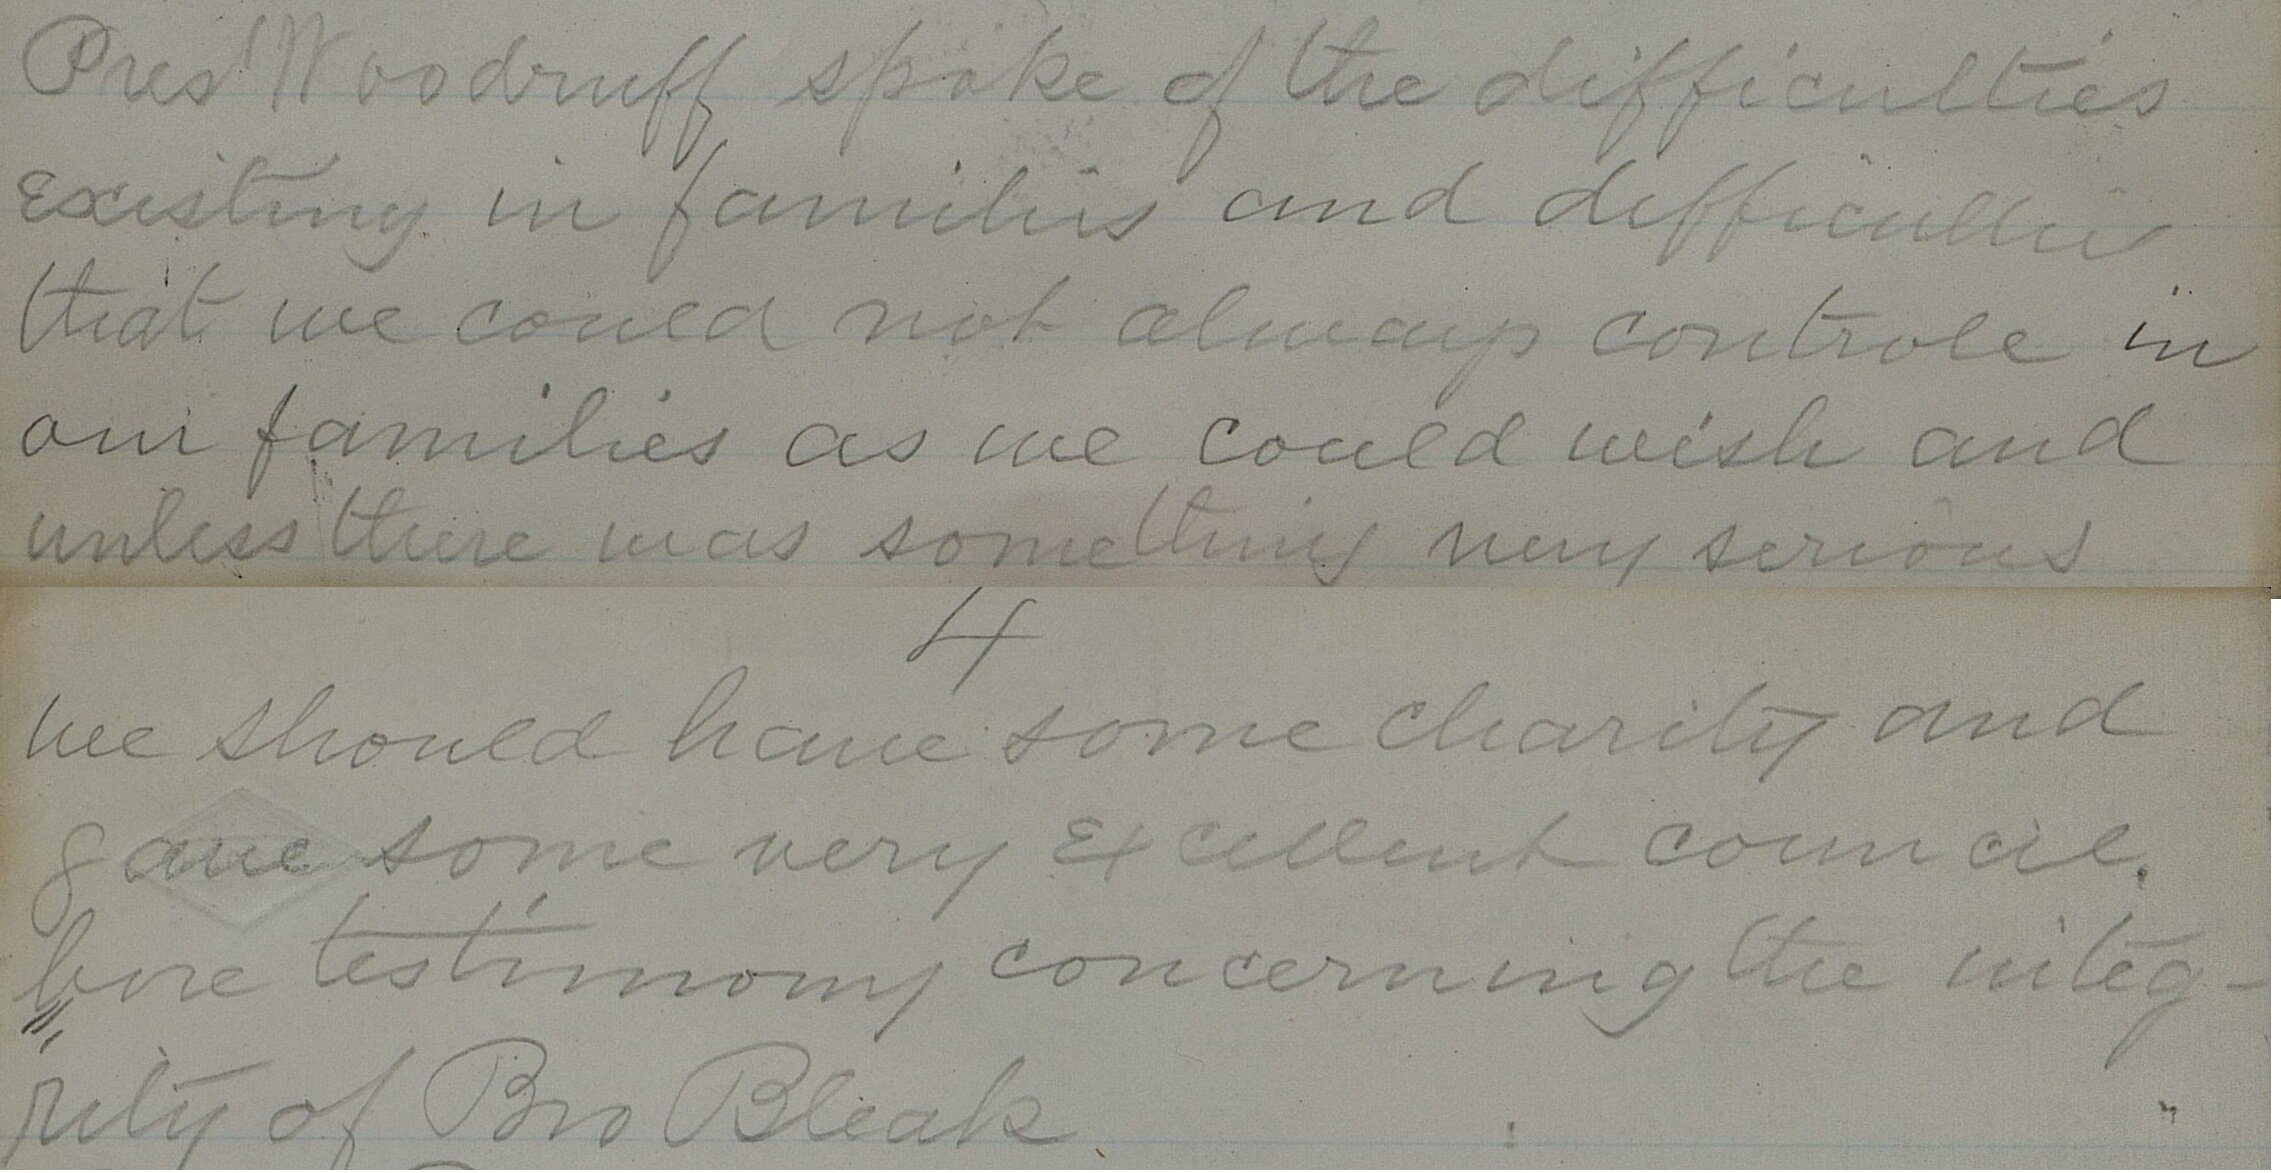 Pres Woodruff spoke of the difficulties
existing in families and difficulties
that we could not always controle in
our families as we could wish and
unless there was something very serious
4
we should have some charity and
gave some very excellent council.
bore testimony concerning the integ-
rity of Bro Bleak